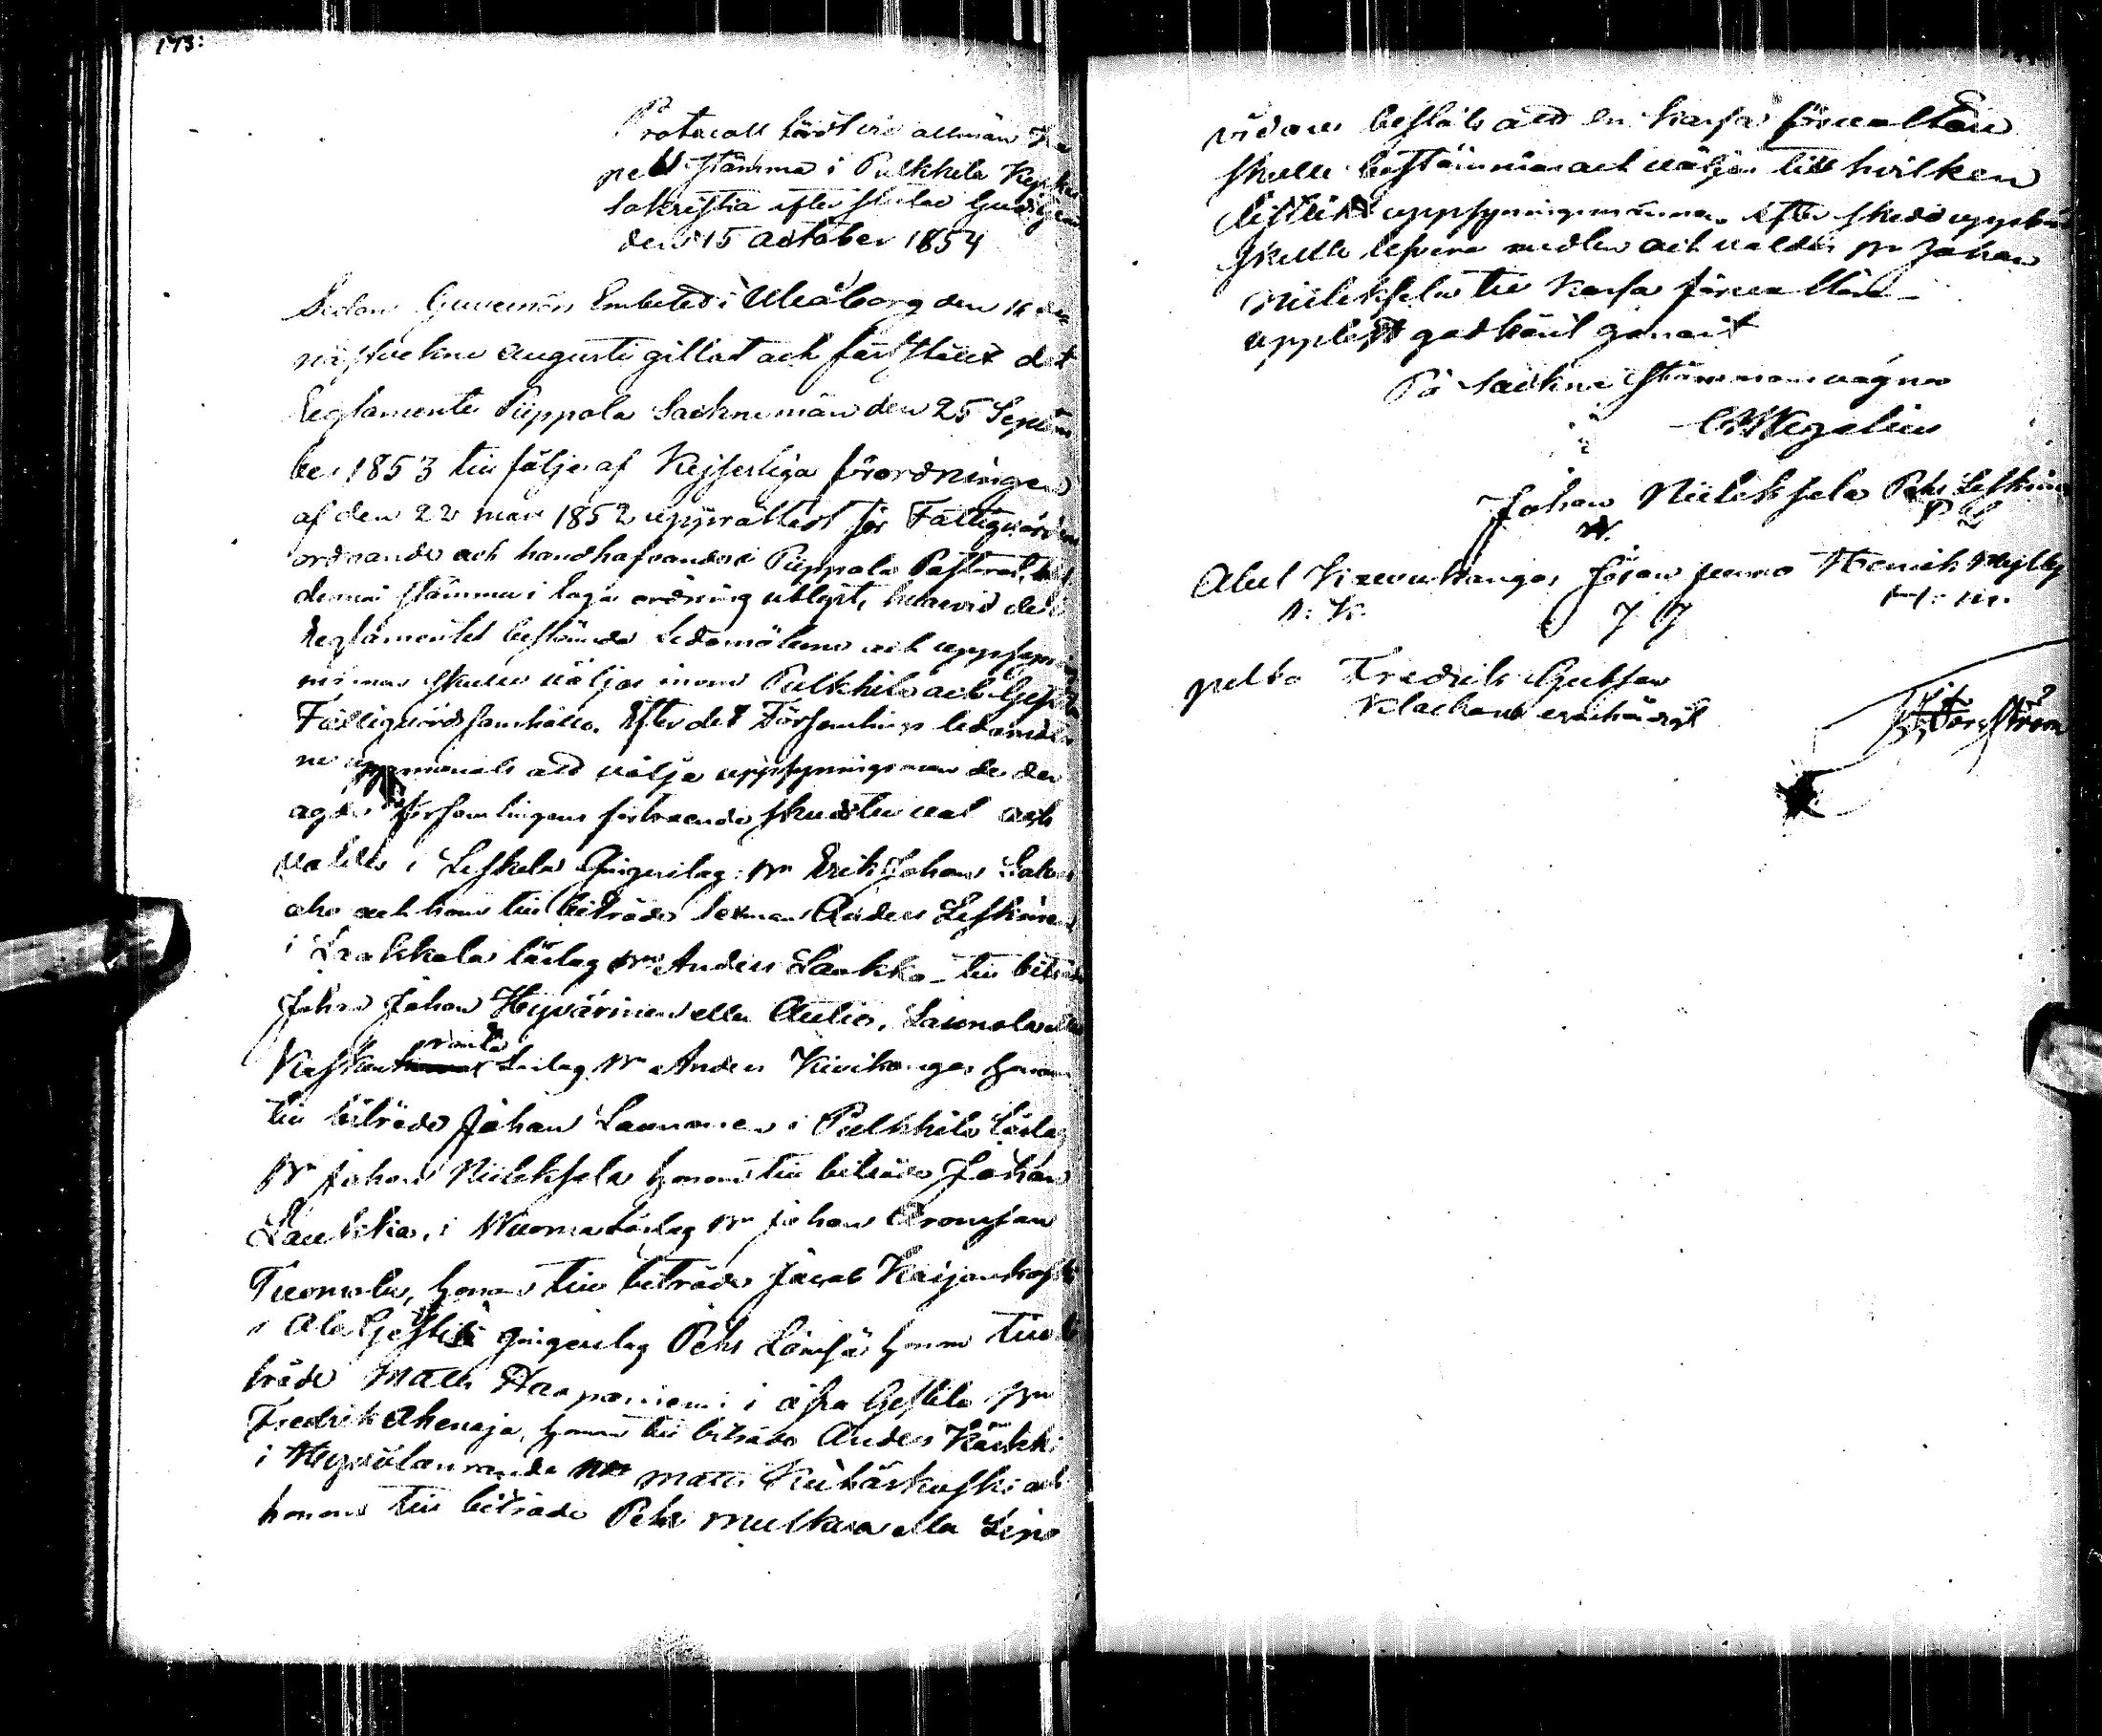 173:
Protocoll hördt vid allmän Ka
pell stämma i Pulkkila Kyrkas
Sakristia efter slutad Gudstjenst
den 15 October 1854
Sedan Guvernörs Embeted i Uleåborg den 16 de
näst vekne Augusti gillat och fastställt det
Reglemente Piippola Sockne män den 25 Septem
ber 1853 till följe af Kejserliga förordningen
af den 22 mars 1852 upprättadt för Fattigvårdens
ordnande och handhafvande i Piippola Pastorat,
denna stämma i laga ordning utlyst, hvarvid de i
Reglamentet bestämda Ledamöterne och uppsynings
männer skulle väljas inom Pulkkila och Gestila
Fattigvårds samhälle. Efter det Församlings ledamöter
ne uppmanats att välja uppsyningsmän de der
ägde församlingens förtroende skedde val och
valdes i Leskelä Gingerilag: Bn Erik Johan
aho och hans till biträde Sexman Anders Leskinen
i Laakkola läslag Bn Anders Laakko till biträde
Johan Johan Hyvärinen eller Aulio, Launola eller
Kesken ranta Läslag Bn Anders Kivikangas honom
till biträde Johan Launonen i Pulkkila Läslag
Bn Johan Niileksela honom till biträde Johan
Laukka, i Wuorna Läslag Bn Johan Aronsson
Tuomala, honom till biträde Jacob Kaijankoski
i Ala Gestilä Gingerilag Pehr Lämsä honom till bi
träde Matts Haapaniemi i öfra Gestila Bn
Fredrik Ahenoja, honom till biträde Anders Kärkki
i Hyvölänranda Matts Kuhäskoski och
honom till biträde Pehr Multara eller
vidare beslöts att en Kassa förvaltare
skulle bestämmas och väljas till hvilken
uppsyningsmännen efter skedd uppbörd
skulle lefvera medlen och valdes Bn Johan
Niileksela till Kassa förvaltare
uppläst godkänt gånart
På Sockne Stämmans vägnar
C W Wegelius
Johan Niileksela Pehr Leskinen
N. P L
Abel Kivenkangas Johan Junno Henrik Mylly
A: K. J J H: M.
pulka Fredrik Gustaf
Klackare